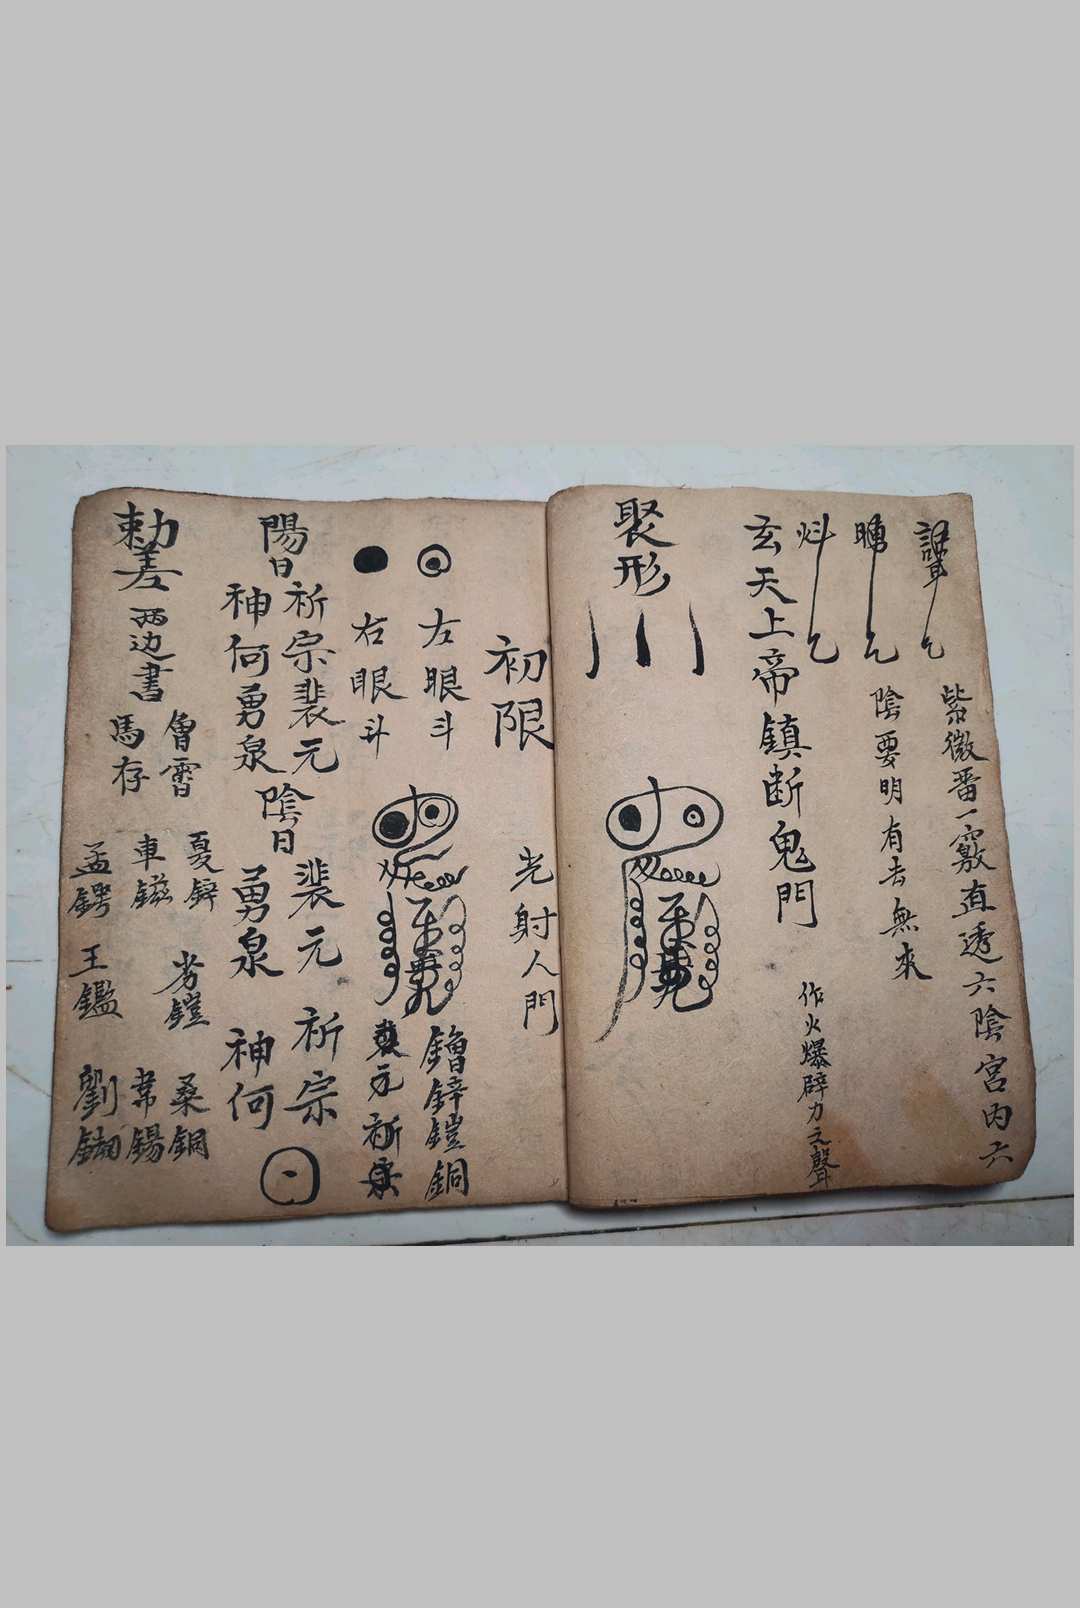 紫微番一竅直透六陰宮內六
陰要明有去無來
玄天上帝鎮断鬼門
作火爆辟力之聲
聚形
初限
光射人門
左眼斗
鏪鋅鎧銅
右眼斗
裴元祈宗
陽日
祈宗裴元
神何勇泉
陰日
裴元 祈宗
勇泉 神何
勅差
两边書
馬存
車鎡
孟鍔
劳鎧
王鑑
桑銅
常錫
劉